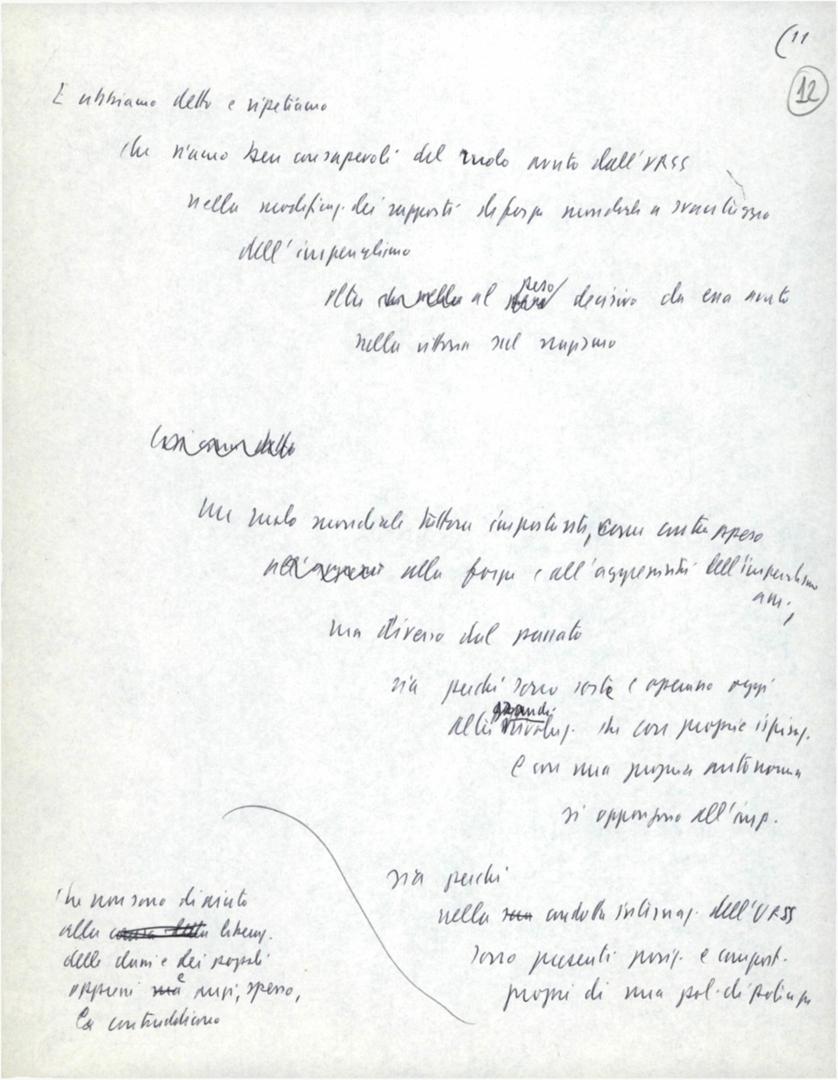 (11
12
E abbiamo detto e ripetiamo
che siamo ben consapevoli del ruolo avuto dall'URSS
nella modificaz. dei rapporti di forza mondiali a svantaggio
dell'imperialismo
oltre al peso decisivo da essa avuto
nella vittoria sul nazismo
Un ruolo mondiale tuttora importante, come contrappeso
alla forza e all'aggressività dell'imperialismo
am.,
ma diverso dal passato
sia perché sono sorte e operano oggi
altre grandi che con proprie ispiraz.
e con una propria autonomia
si oppongono all'imp.
sia perché
nella condotta internaz. dell'URSS
sono presenti posiz. e comport.
propri di una pol. di potenza
che non sono di aiuto
alla liberaz.
delle classi e dei popoli
oppure e anzi, spesso,
la contraddicono